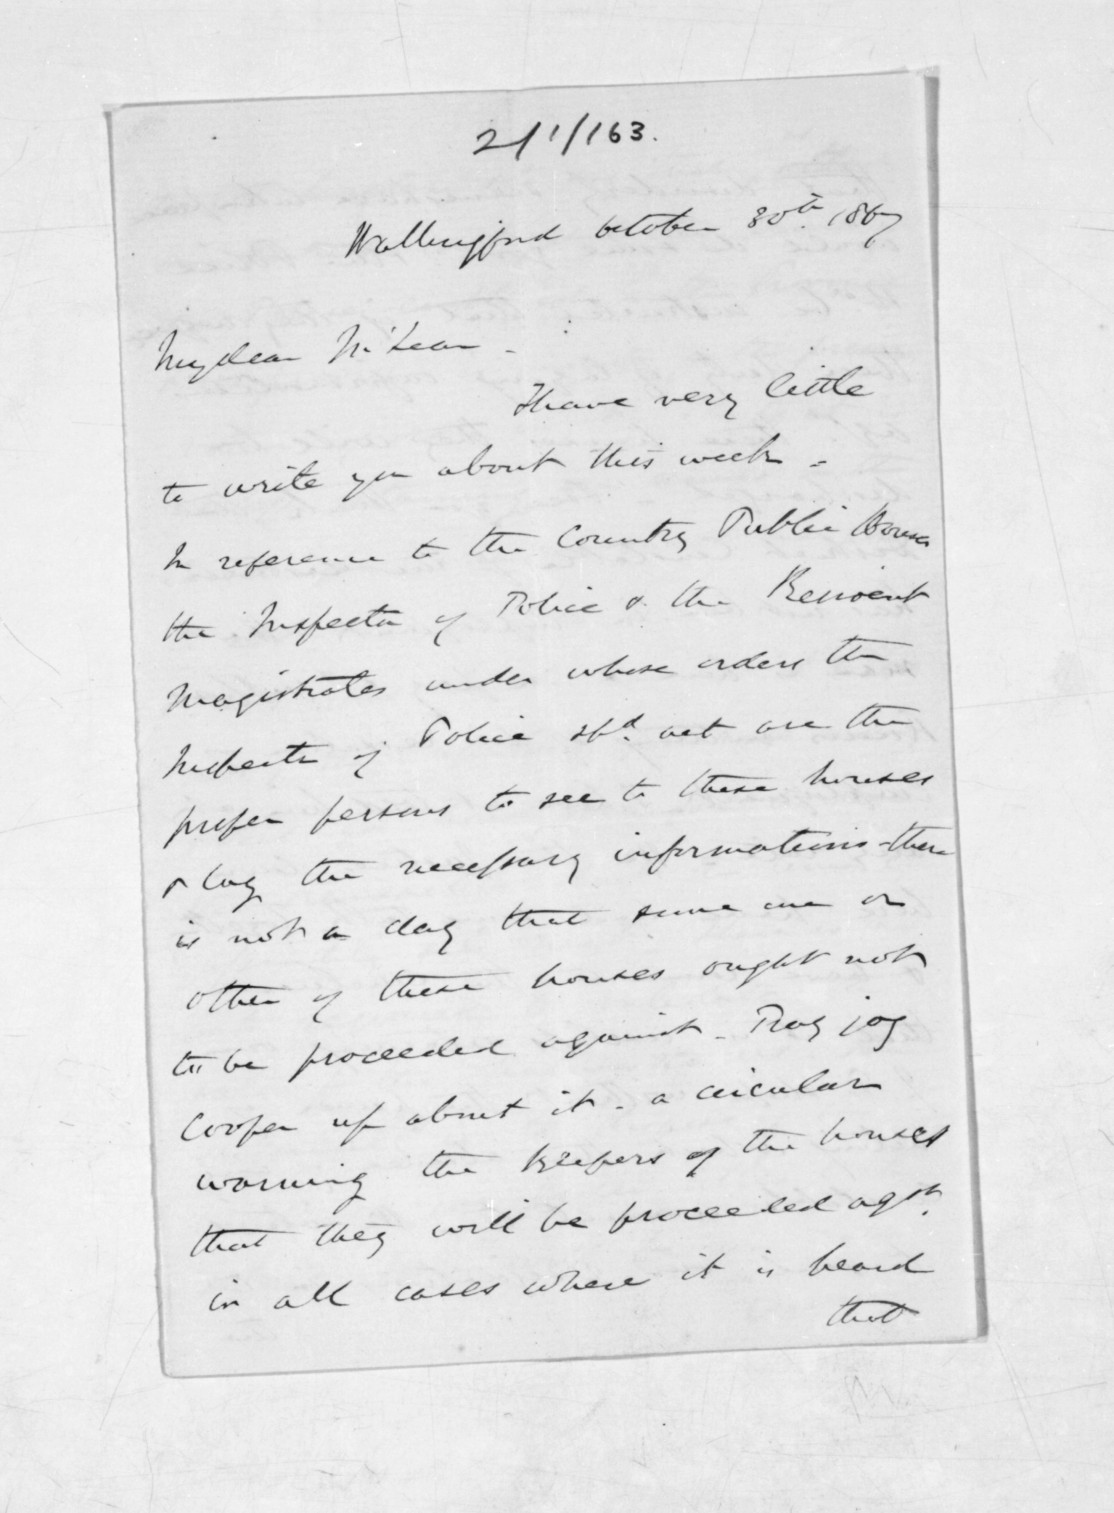 2/1/163.
Wallingford October 30th. 1867
My dear McLean -
I have very little
to write you about this week -
In reference to the Country Public Houses
the Inspector of Police & the Resident
Magistrates under whose orders the
Inspector of Police shd. act are the
proper persons to see to these houses
& lay the necessary informations - there
is not a day that some one or
other of these houses ought not
to be proceeded against - Pray jog
Cooper up about it - a circular
warning the keepers of the houses
that they will be proceeded agst.
in all cases where it is heard
that